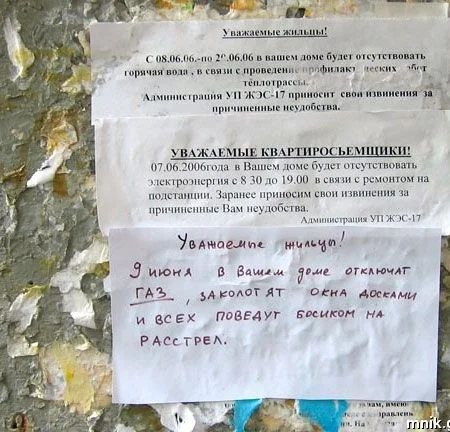 Уважаемые жильцы!
С 08.06.06.-по 2 .06.06 в вашем доме будет отсутствовать
горячая вода , в связи с проведение профилакт ческих работ
теплотрассы.
Администрация УП ЖЭС-17 приносит свои извинения за
причиненные неудобства.
УВАЖАЕМЫЕ КВАРТИРОСЬЕМЩИКИ!
07.06.2006года в Вашем доме будет отсутствовать
электроэнергия с 8 30 до 19.00 в связи с ремонтом на
подстанции. Заранее приносим свои извинения за
причиненные Вам неудобства.
Администрация УП ЖЭС-17
Уважаемые жильцы!
9 июня в Вашем доме отключат
ГАЗ, заколотят окна досками
и всех поведут босиком на
расстрел.
mnik.